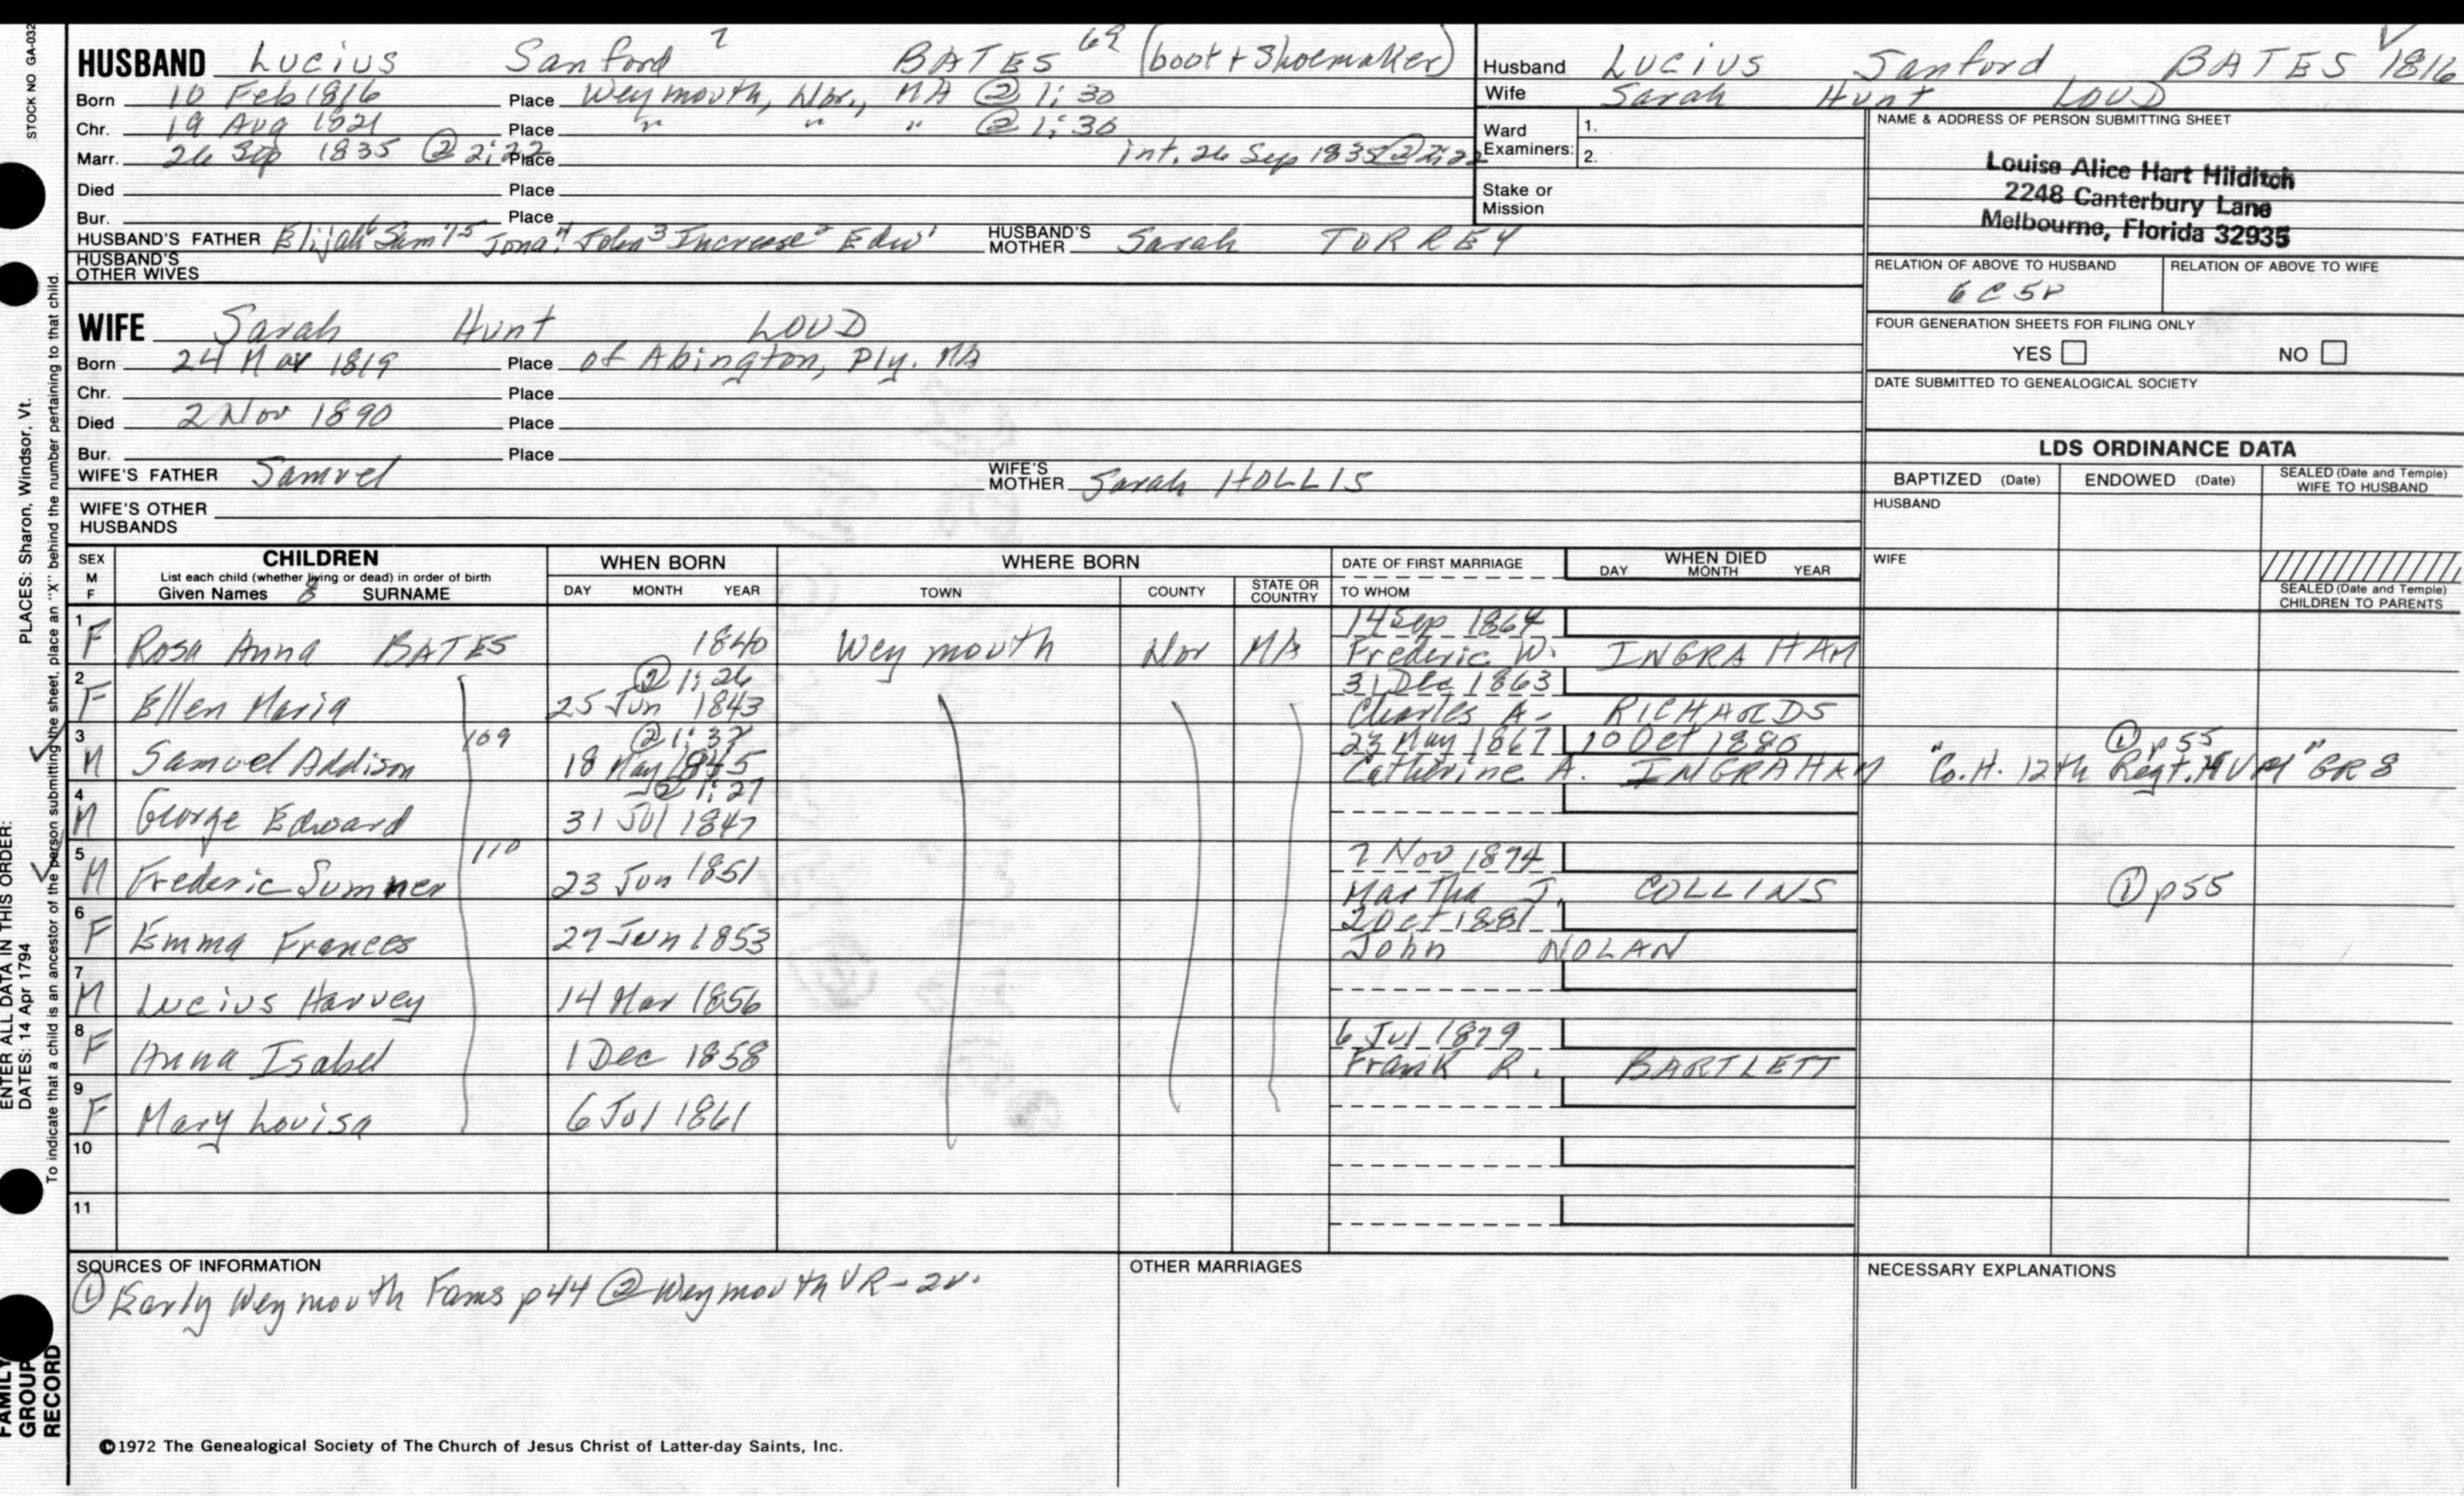 STOCK NO GA-032
PLACES: Sharon, Windsor, Vt.
ENTER ALL DATA IN THIS ORDER:
DATES: 14 Apr 1794
To indicate that a child is an ancestor of the person submitting the sheet, place an "X" behind the number pertaining to that child.
FAMILY GROUP RECORD
HUSBAND Lucius Sanford 7 BATES 69 (boot + Shoemaker)
Born 10 Feb 1816 Place Weymouth, Nor., MA @ 1:30
Chr. 19 Aug 1821 Place " " " @ 1:30
Marr. 26 Sep 1835 @ 2:22 Place int. 26 Sep 1835 @ 2:22
Died Place
Bur. Place
HUSBAND'S FATHER Elijah6 Sam'l5 Jona.4 John3 Increase2 Edw1 HUSBAND'S MOTHER Sarah TORREY
HUSBAND'S OTHER WIVES
WIFE Sarah Hunt LOUD
Born 24 Mar 1819 Place of Abington, Ply. MA
Chr. Place
Died 2 Nov 1890 Place
Bur. Place
WIFE'S FATHER Samuel WIFE'S MOTHER Sarah HOLLIS
WIFE'S OTHER HUSBANDS
Husband Lucius Sanford BATES 1816
Wife Sarah Hunt LOUD
Ward Examiners: 1.
2.
Stake or Mission
NAME & ADDRESS OF PERSON SUBMITTING SHEET
Louise Alice Hart Hilditch
2248 Canterbury Lane
Melbourne, Florida 32935
RELATION OF ABOVE TO HUSBAND RELATION OF ABOVE TO WIFE
6C5R
FOUR GENERATION SHEETS FOR FILING ONLY
YES NO
DATE SUBMITTED TO GENEALOGICAL SOCIETY
LDS ORDINANCE DATA
BAPTIZED (Date) ENDOWED (Date) SEALED (Date and Temple) WIFE TO HUSBAND
HUSBAND
WIFE
SEALED (Date and Temple) CHILDREN TO PARENTS
SEX M F CHILDREN WHEN BORN WHERE BORN DATE OF FIRST MARRIAGE WHEN DIED
List each child (whether living or dead) in order of birth
Given Names 8 SURNAME DAY MONTH YEAR TOWN COUNTY STATE OR COUNTRY TO WHOM DAY MONTH YEAR
1 F Rosa Anna BATES 1840 Weymouth Nor MA 14 Sep 1864
Frederic W. INGRAHAM
2 F Ellen Maria @ 1:26 25 Jun 1843 31 Dec 1863
Charles A. RICHARDS
3 M Samuel Addison 109 @ 1:37 18 May 1845 23 May 1867 10 Oct 1880 ① p55
Catherine A. INGRAHAM "Co. H. 12th Regt. MVM" GR8
4 M George Edward @ 1:27 31 Jul 1847
5 M Frederic Sumner 110 23 Jun 1851 7 Nov 1874
Martha J. COLLINS ① p55
6 F Emma Frances 27 Jun 1853 2 Oct 1881
John NOLAN
7 M Lucius Harvey 14 Mar 1856
8 F Anna Isabel 1 Dec 1858 6 Jul 1879
Frank R. BARTLETT
9 F Mary Louisa 6 Jul 1861
10
11
SOURCES OF INFORMATION
① Early Weymouth Fams p44 ② Weymouth VR - 2v.
OTHER MARRIAGES
NECESSARY EXPLANATIONS
©1972 The Genealogical Society of The Church of Jesus Christ of Latter-day Saints, Inc.